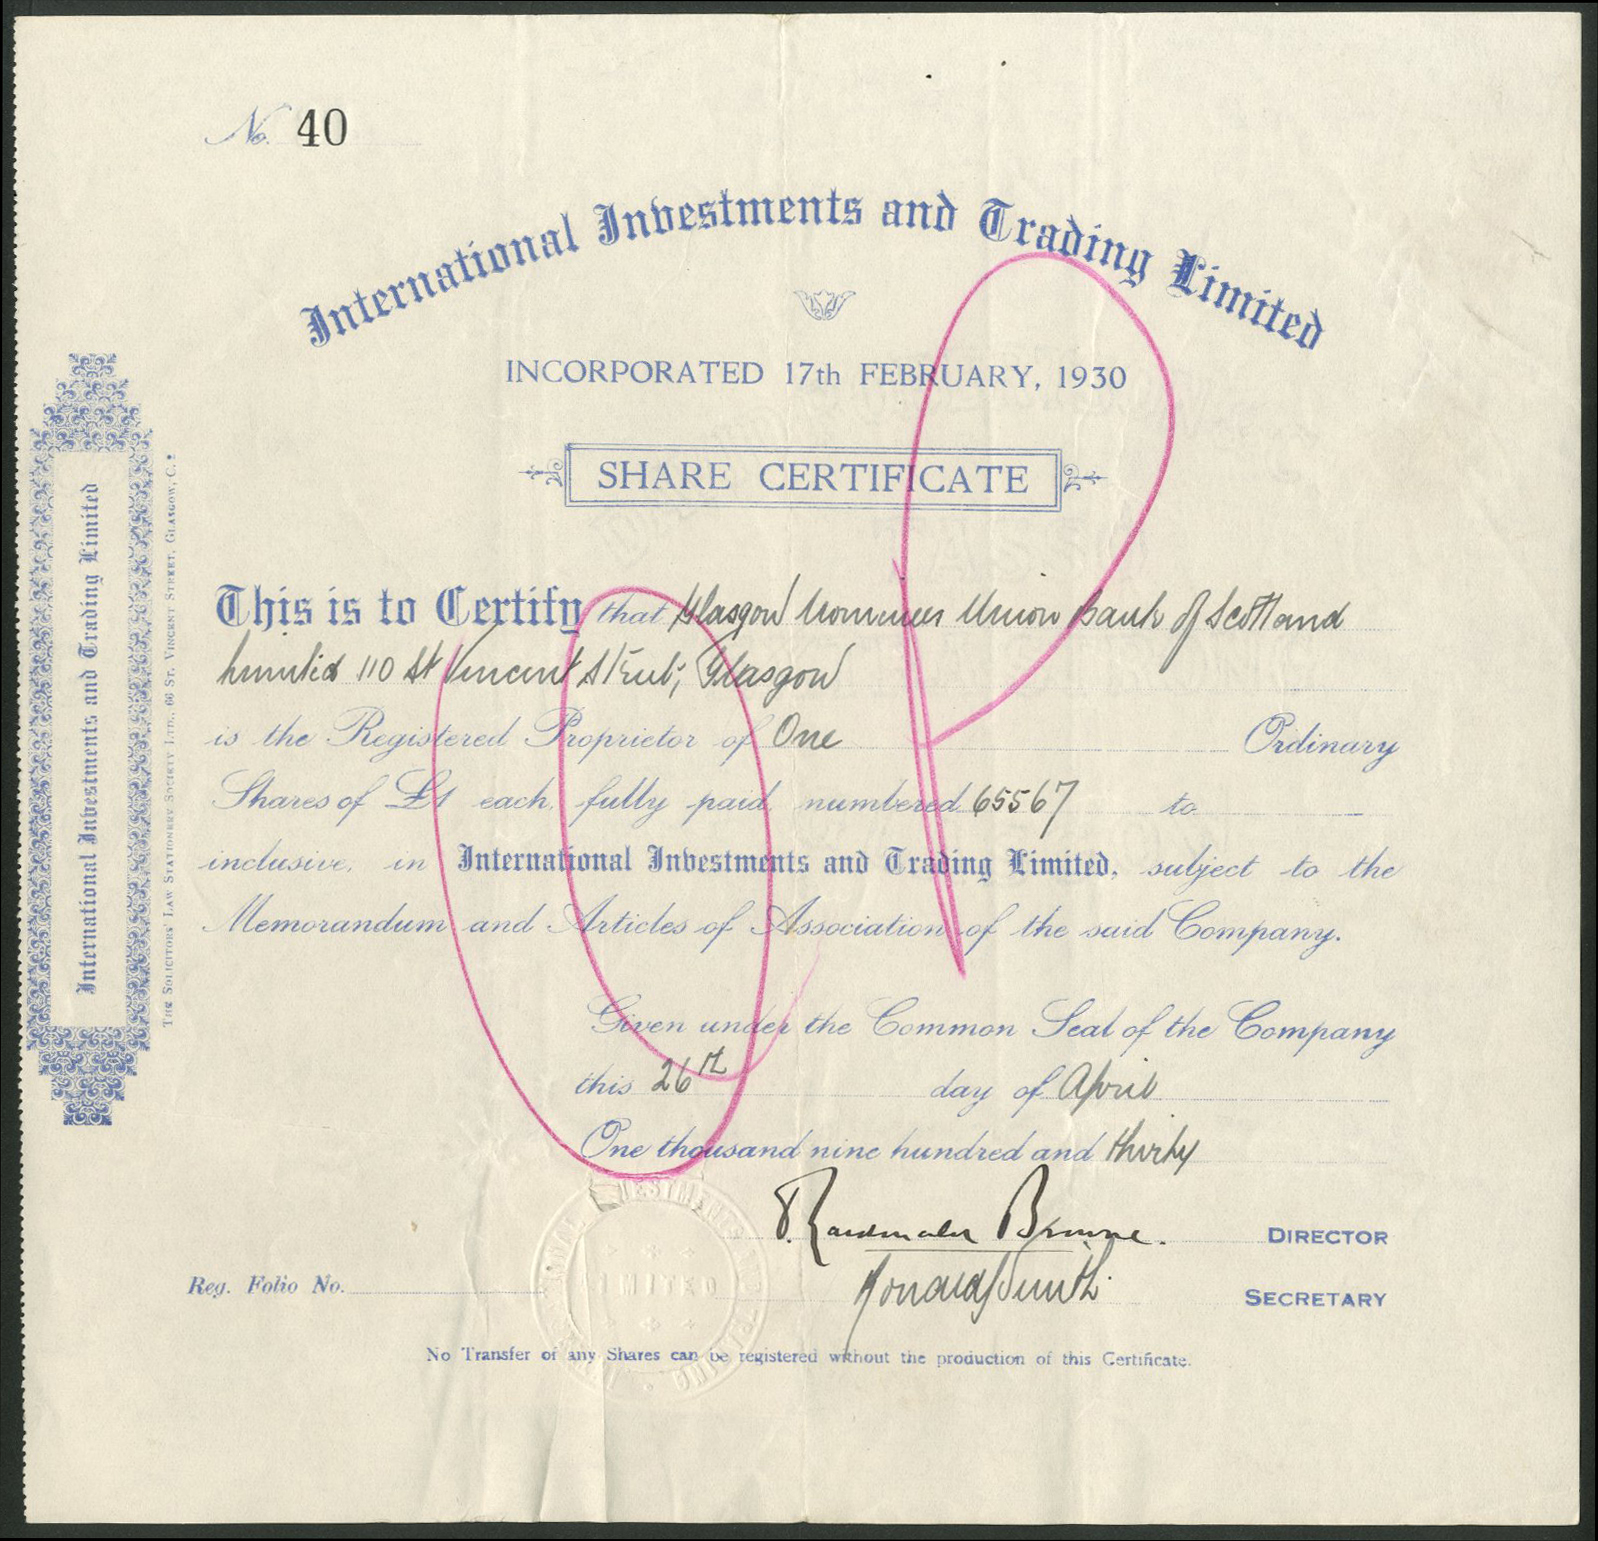 No. 40
International Investments and Trading Limited
INCORPORATED 17th FEBRUARY, 1930
SHARE CERTIFICATE
This is to Certify that Glasgow Nominees Union Bank of Scotland
Limited 110 St Vincent Street, Glasgow
is the Registered Proprietor of One Ordinary
Shares of £1 each, fully paid, numbered 65567 to
inclusive, in International Investments and Trading Limited, subject to the
Memorandum and Articles of Association of the said Company.
Given under the Common Seal of the Company
this 26th day of April
One thousand nine hundred and thirty
Browne. DIRECTOR
Ronald Smith. SECRETARY
Reg. Folio No.
No Transfer of any Shares can be registered without the production of this Certificate.
International Investments and Trading Limited
THE SOLICITORS' LAW STATIONERY SOCIETY LTD., 66 ST. VINCENT STREET, GLASGOW, C. 2
LIMITED